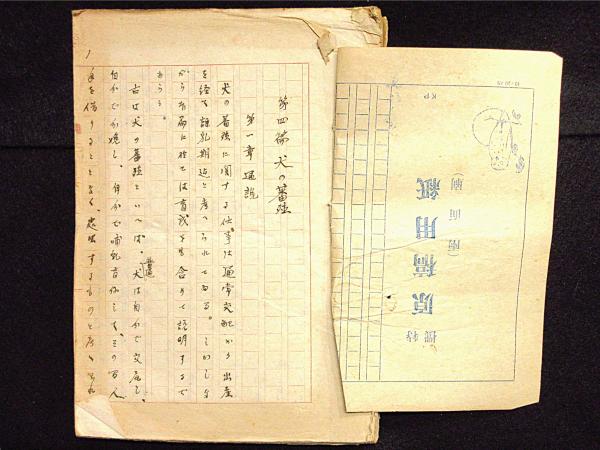 第四篇 犬の蕃殖
第一章 通説
犬の蕃殖に関する仕事は通常交配から出産
を経て離乳期迄と考へられてゐる。しかしな
がら本篇に於ては育成をも含めて説明するで
あらう。
古は犬の蕃殖といへば、普通犬は自分で交尾し、
自分で分娩し、自分で哺乳育仔し、その間人
手を借りることなく、処理するものと考へられ
特撰
原稿用紙
(両面刷)
KP